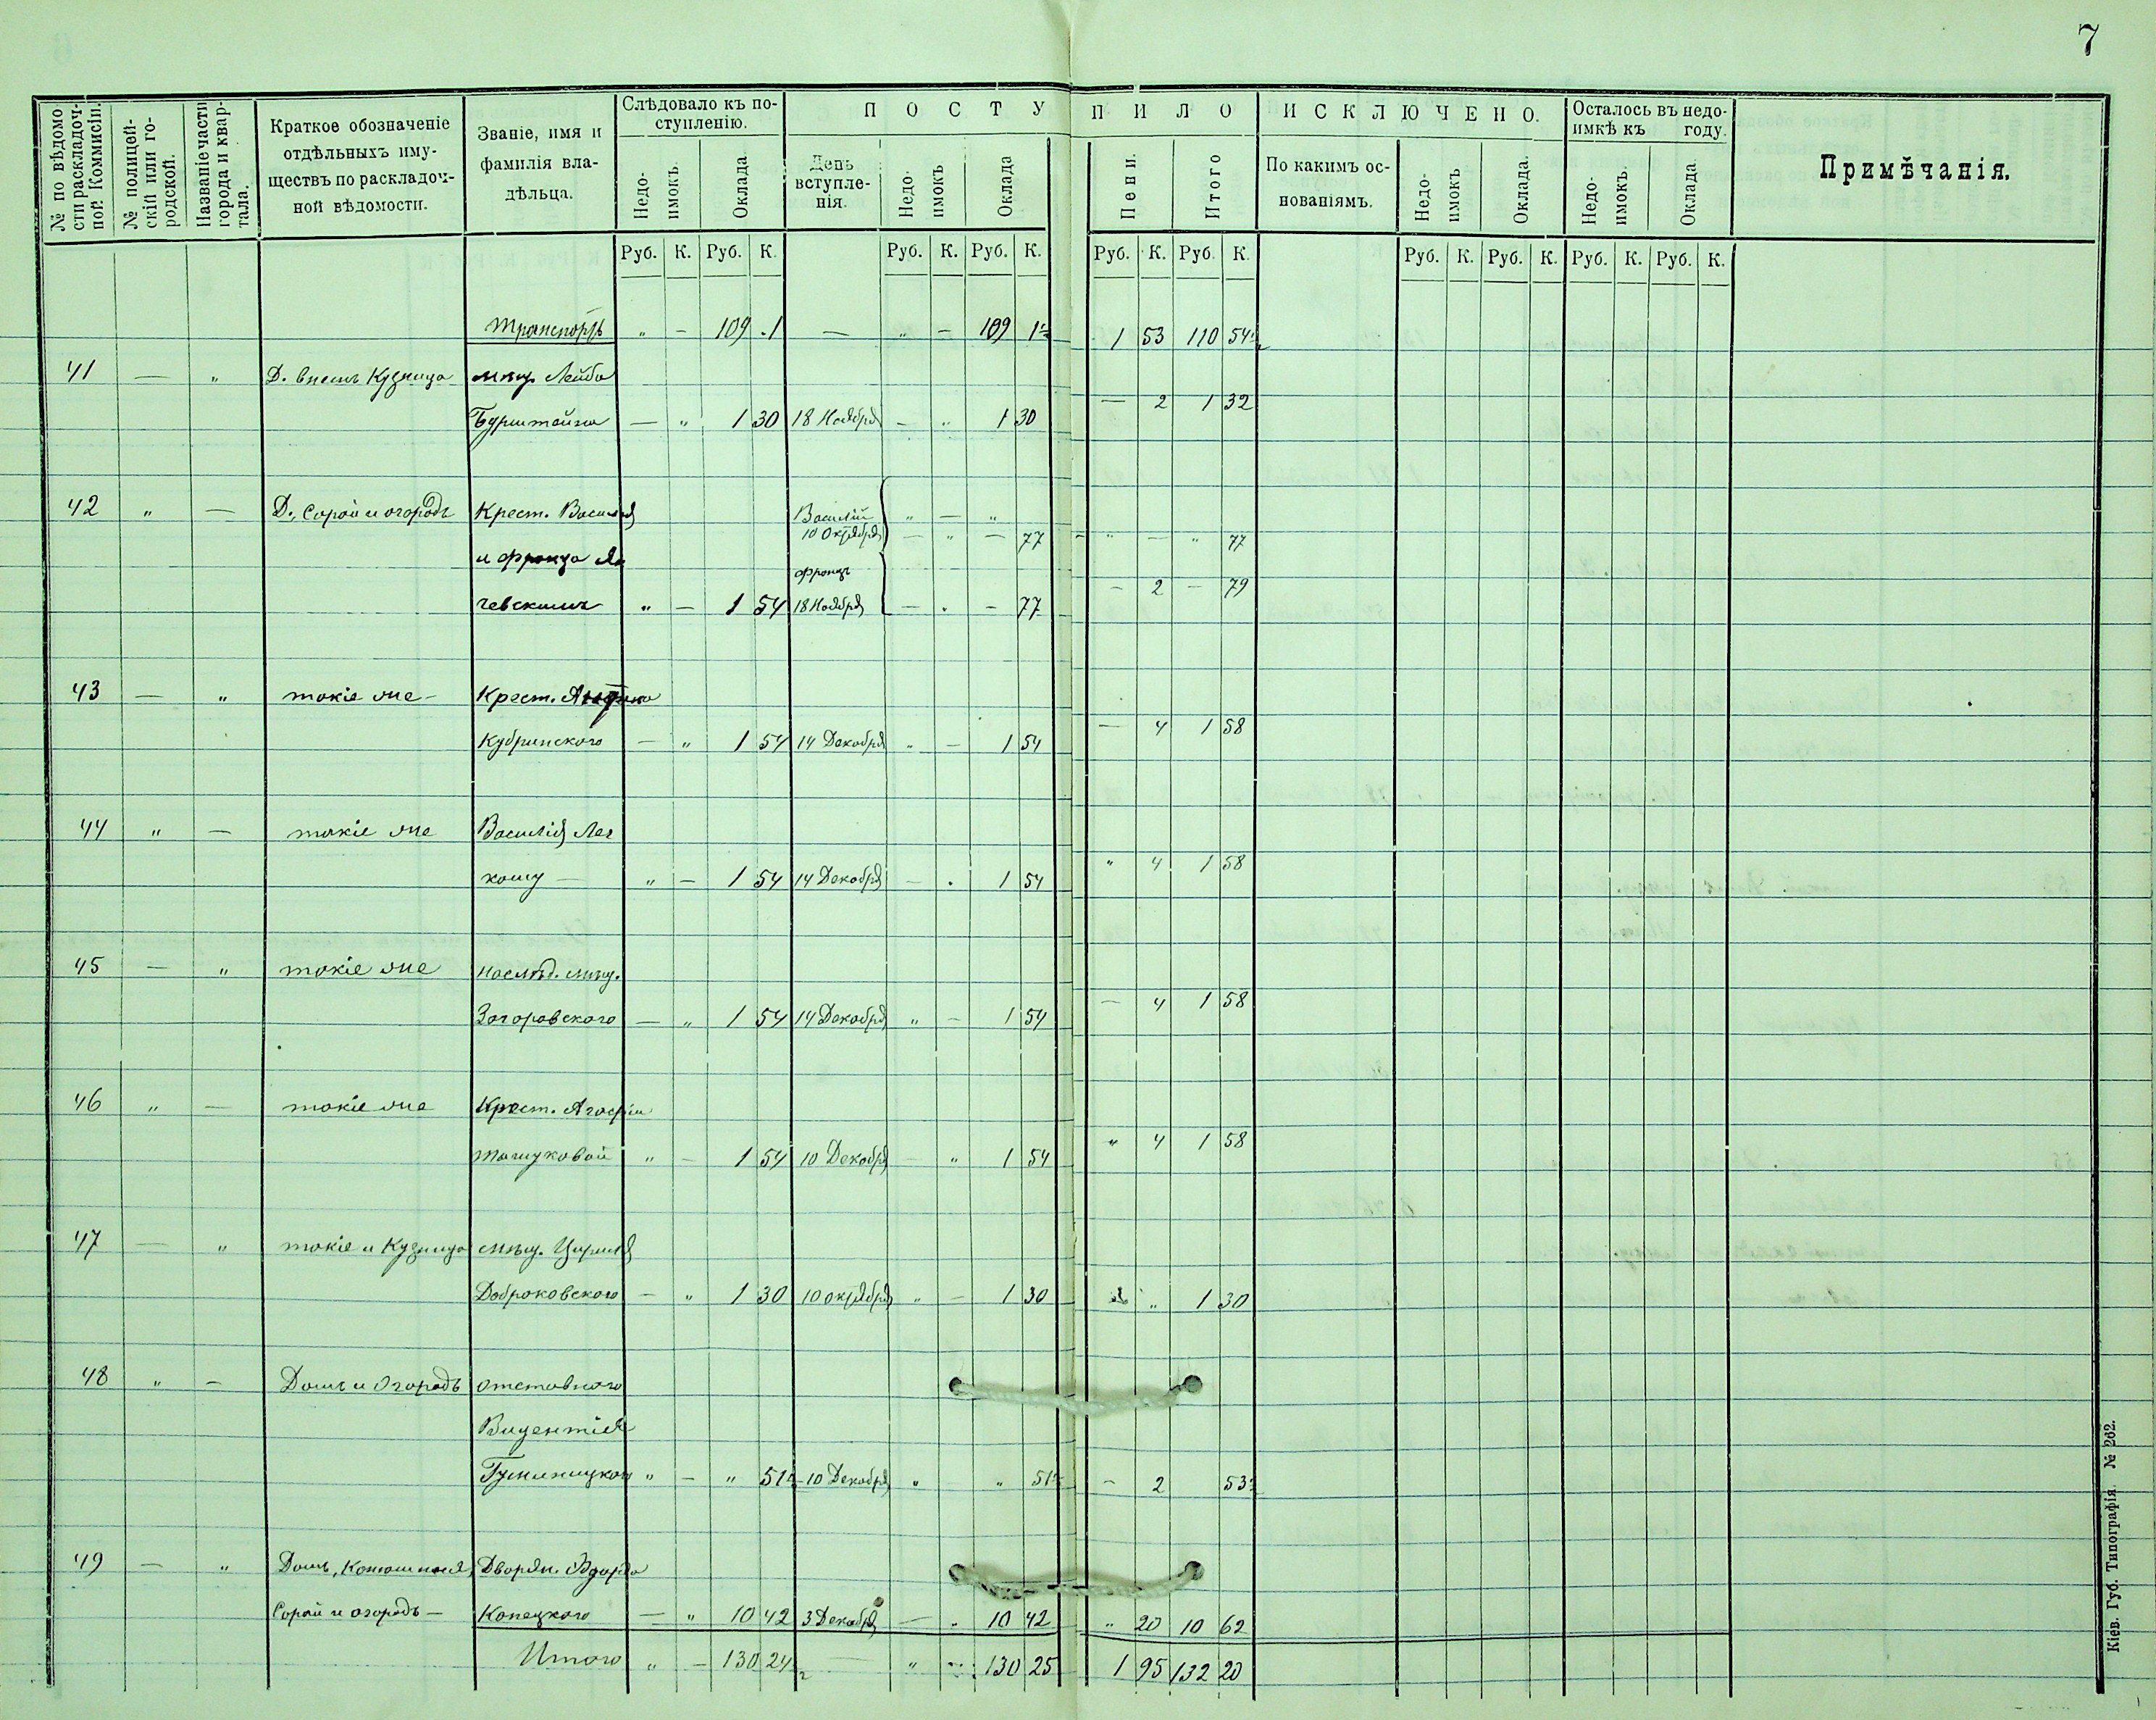 7
№ по вѣдомости раскладочной Коммисіи.
№ полицейскій или городской.
Названіе части города и квартала.
Краткое обозначеніе отдѣльныхъ имуществъ по раскладочной вѣдомости.
Званіе, имя и фамилія владѣльца.
Слѣдовало къ поступленію.
Недоимокъ. Оклада.
ПОСТУПИЛО
День вступленія. Недоимокъ Оклада Пени. Итого
ИСКЛЮЧЕНО.
По какимъ основаніямъ. Недоимокъ Оклада.
Осталось въ недоимкѣ къ году.
Недоимокъ. Оклада.
Примѣчанія.
Руб. К. Руб. К. Руб. К. Руб. К. Руб. К. Руб. К. Руб. К. Руб. К. Руб. К. Руб. К.
Транспортъ " — 109 1 — " — 109 1½ 1 53 110 54½
41 — " Д. Кузница мѣщ. Лейба
Бурштейна — " 1 30 18 Ноября — " 1 30 — 2 1 32
42 " — Д., Сарай и огородъ Крест. Василія Василій " — "
10 Октября — " — 77 " — " 77
и Франца Ля Францъ
чевскихъ " — 1 54 18 Ноября — " — 77 — 2 — 79
43 — " такіе же — Крест.
Кубринского — " 1 54 14 Декабря " — 1 54 — 4 1 58
44 " — такіе же Василія
— " — 1 54 14 Декабря — " 1 54 " 4 1 58
45 — " такіе же наслѣд. мѣщ.
Загоровского — " 1 54 14 Декабря " — 1 54 — 4 1 58
46 " — такіе же Крест. Агафіи
" — 1 54 10 Декабря — " 1 54 " 4 1 58
47 — " такіе и Кузница мѣщ.
Доброковского — " 1 30 10 октября " — 1 30 " 1 30
48 " — Домъ и Огородъ отставного
Викентія
" — " 51½ 10 Декабря " — " 51½ — 2 53½
49 — " Домъ, Конюшня, Дворян. Эдуарда
Сарай и огородъ — Копецкого — " 10 42 3 Декабря — " 10 42 " 20 10 62
Итого " — 130 24½ — " — 130 25 1 95 132 20
Кіев. Губ. Типографія. № 262.